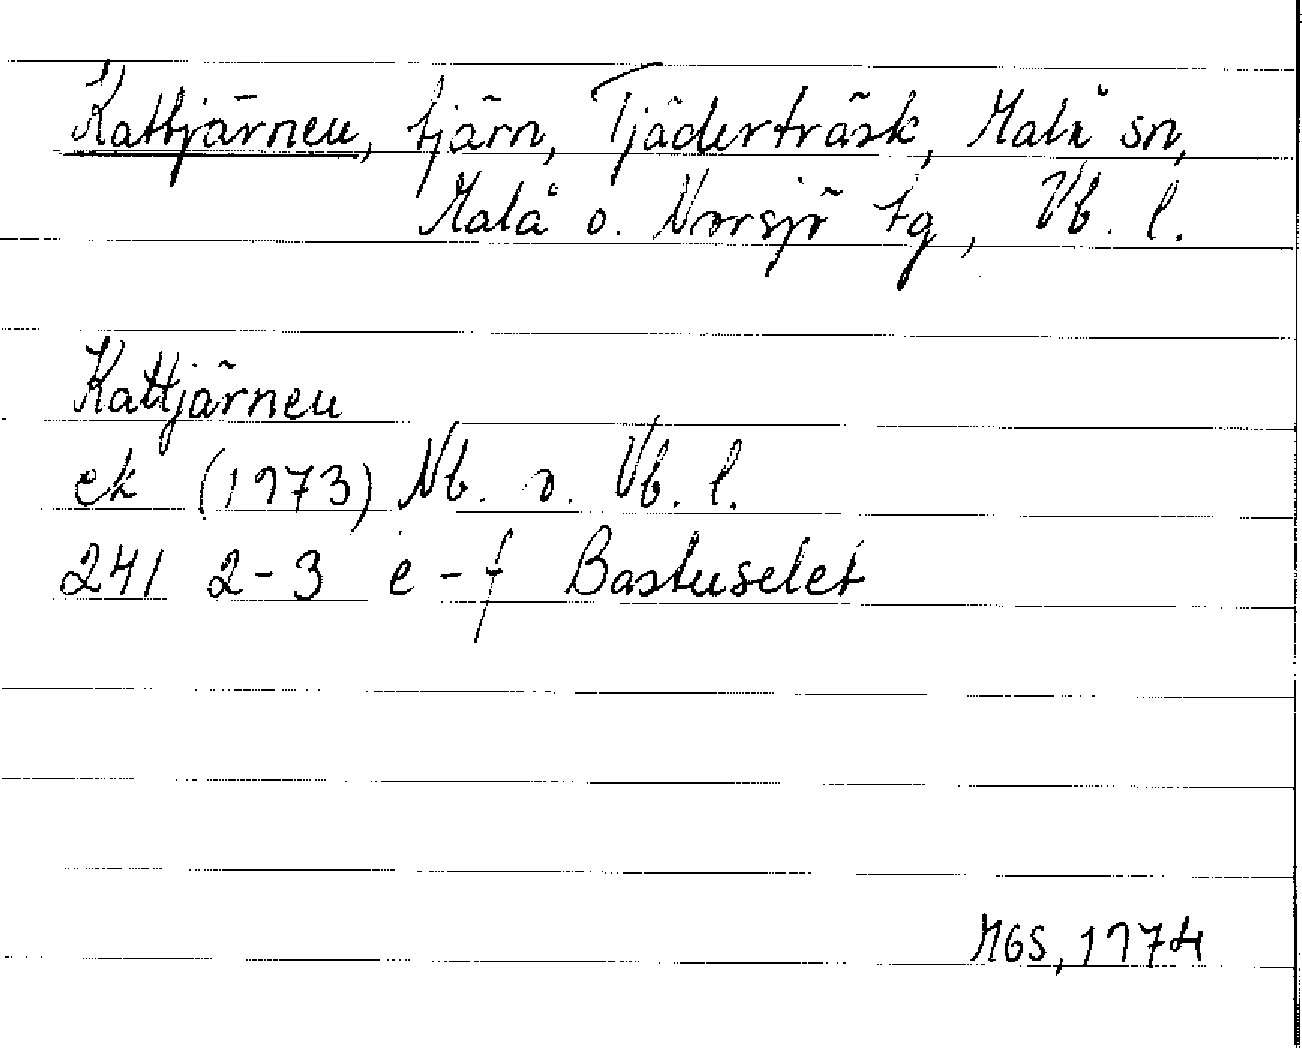 1)
Kattjärnen, tjärn, Tjäderträsk, Malå sn,
Malå o. Norsjö tg, Vb. l.
Kattjärnen
ek (1973) Nb. o. Vb. l.
241 2-3 e-f Bastuselet
MGS, 1974